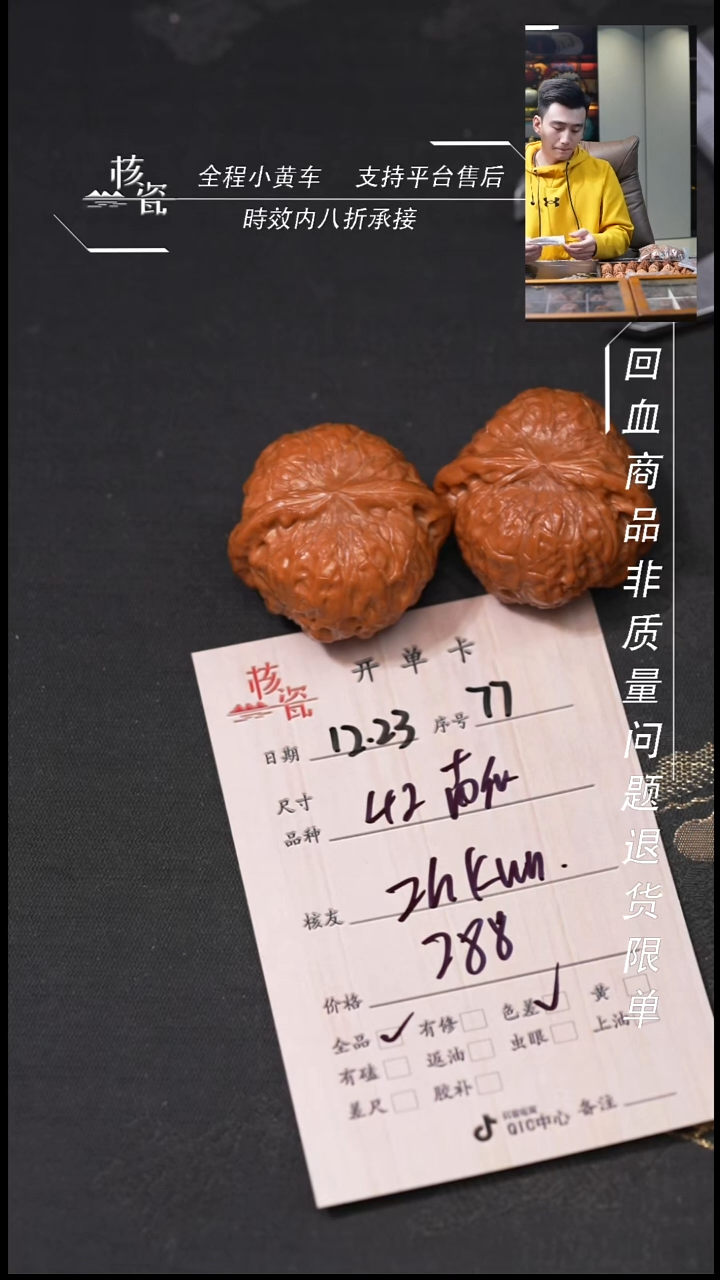 核瓷
全程小黄车 支持平台售后
時效内八折承接
回血商品非质量问题退货限单
核瓷
开单卡
日期 12.23 序号 77
尺寸
品种 42
核友 zhKun.
价格 288
全品 ✓ 有修 色差 ✓ 黄
有磕 返油 虫眼 上油
差尺 胶补
QIC中心 备注